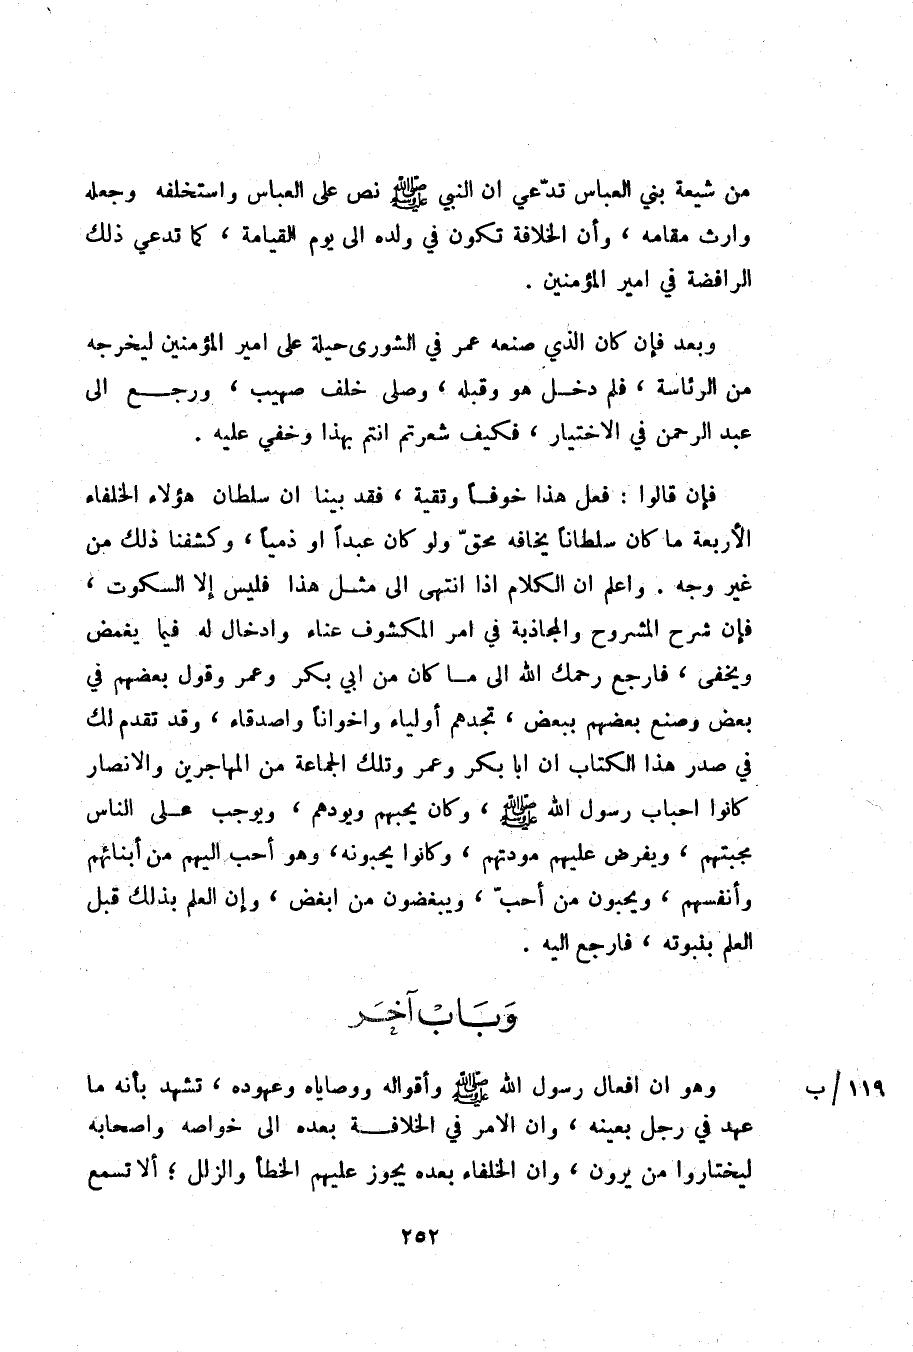 من شيعة بني العباس تدّعي ان النبي ﷺ نص على العباس واستخلفه وجعله
وارث مقامه ، وأن الخلافة تكون في ولده الى يوم القيامة ، كما تدعي ذلك
الرافضة في امير المؤمنين .
وبعد فإن كان الذي صنعه عمر في الشورى حيلة على امير المؤمنين ليخرجه
من الرئاسة ، فلم دخل هو وقبله ، وصلى خلف صهيب ، ورجع الى
عبد الرحمن في الاختيار ، فكيف شعرتم انتم بهذا وخفي عليه .
فإن قالوا : فعل هذا خوفاً وتقية ، فقد بينا ان سلطان هؤلاء الخلفاء
الأربعة ما كان سلطاناً يخافه محقّ ولو كان عبداً او ذمياً ، وكشفنا ذلك من
غير وجه . واعلم ان الكلام اذا انتهى الى مثل هذا فليس إلا السكوت ،
فإن شرح المشروح والمجاذبة في امر المكشوف عناء وادخال له فيما يغمض
ويخفى ، فارجع رحمك الله الى ما كان من ابي بكر وعمر وقول بعضهم في
بعض وصنع بعضهم ببعض ، تجدهم أولياء واخواناً واصدقاء ، وقد تقدم لك
في صدر هذا الكتاب ان ابا بكر وعمر وتلك الجماعة من المهاجرين والانصار
كانوا احباب رسول الله ﷺ ، وكان يحبهم ويودهم ، ويوجب على الناس
محبتهم ، ويفرض عليهم مودتهم ، وكانوا يحبونه، وهو أحب اليهم من أبنائهم
وأنفسهم ، ويحبون من أحبّ ، ويبغضون من ابغض ، وإن العلم بذلك قبل
العلم بنبوته ، فارجع اليه .
وَبَابْ آخَر
وهو ان افعال رسول الله ﷺ وأقواله ووصاياه وعهوده ، تشهد بأنه ما
١١٩/ ب
عهد في رجل بعينه ، وان الامر في الخلافة بعده الى خواصه واصحابه
ليختاروا من يرون ، وان الخلفاء بعده يجوز عليهم الخطأ والزلل ؛ ألا تسمع
٢٥٢